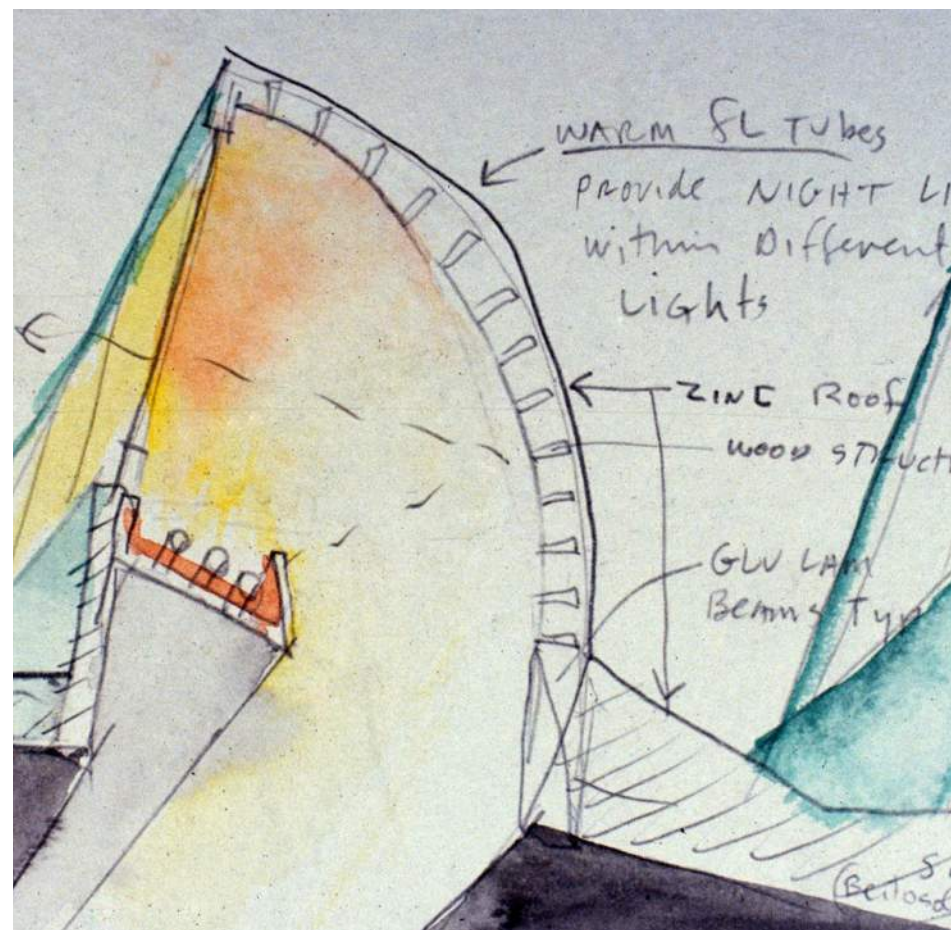 WARM FL TUbes
PROVIDE NIGHT LI
within Different
LiGhts
ZINC Roof
WOOD STRUCT
GLU LAM
Beams Typ